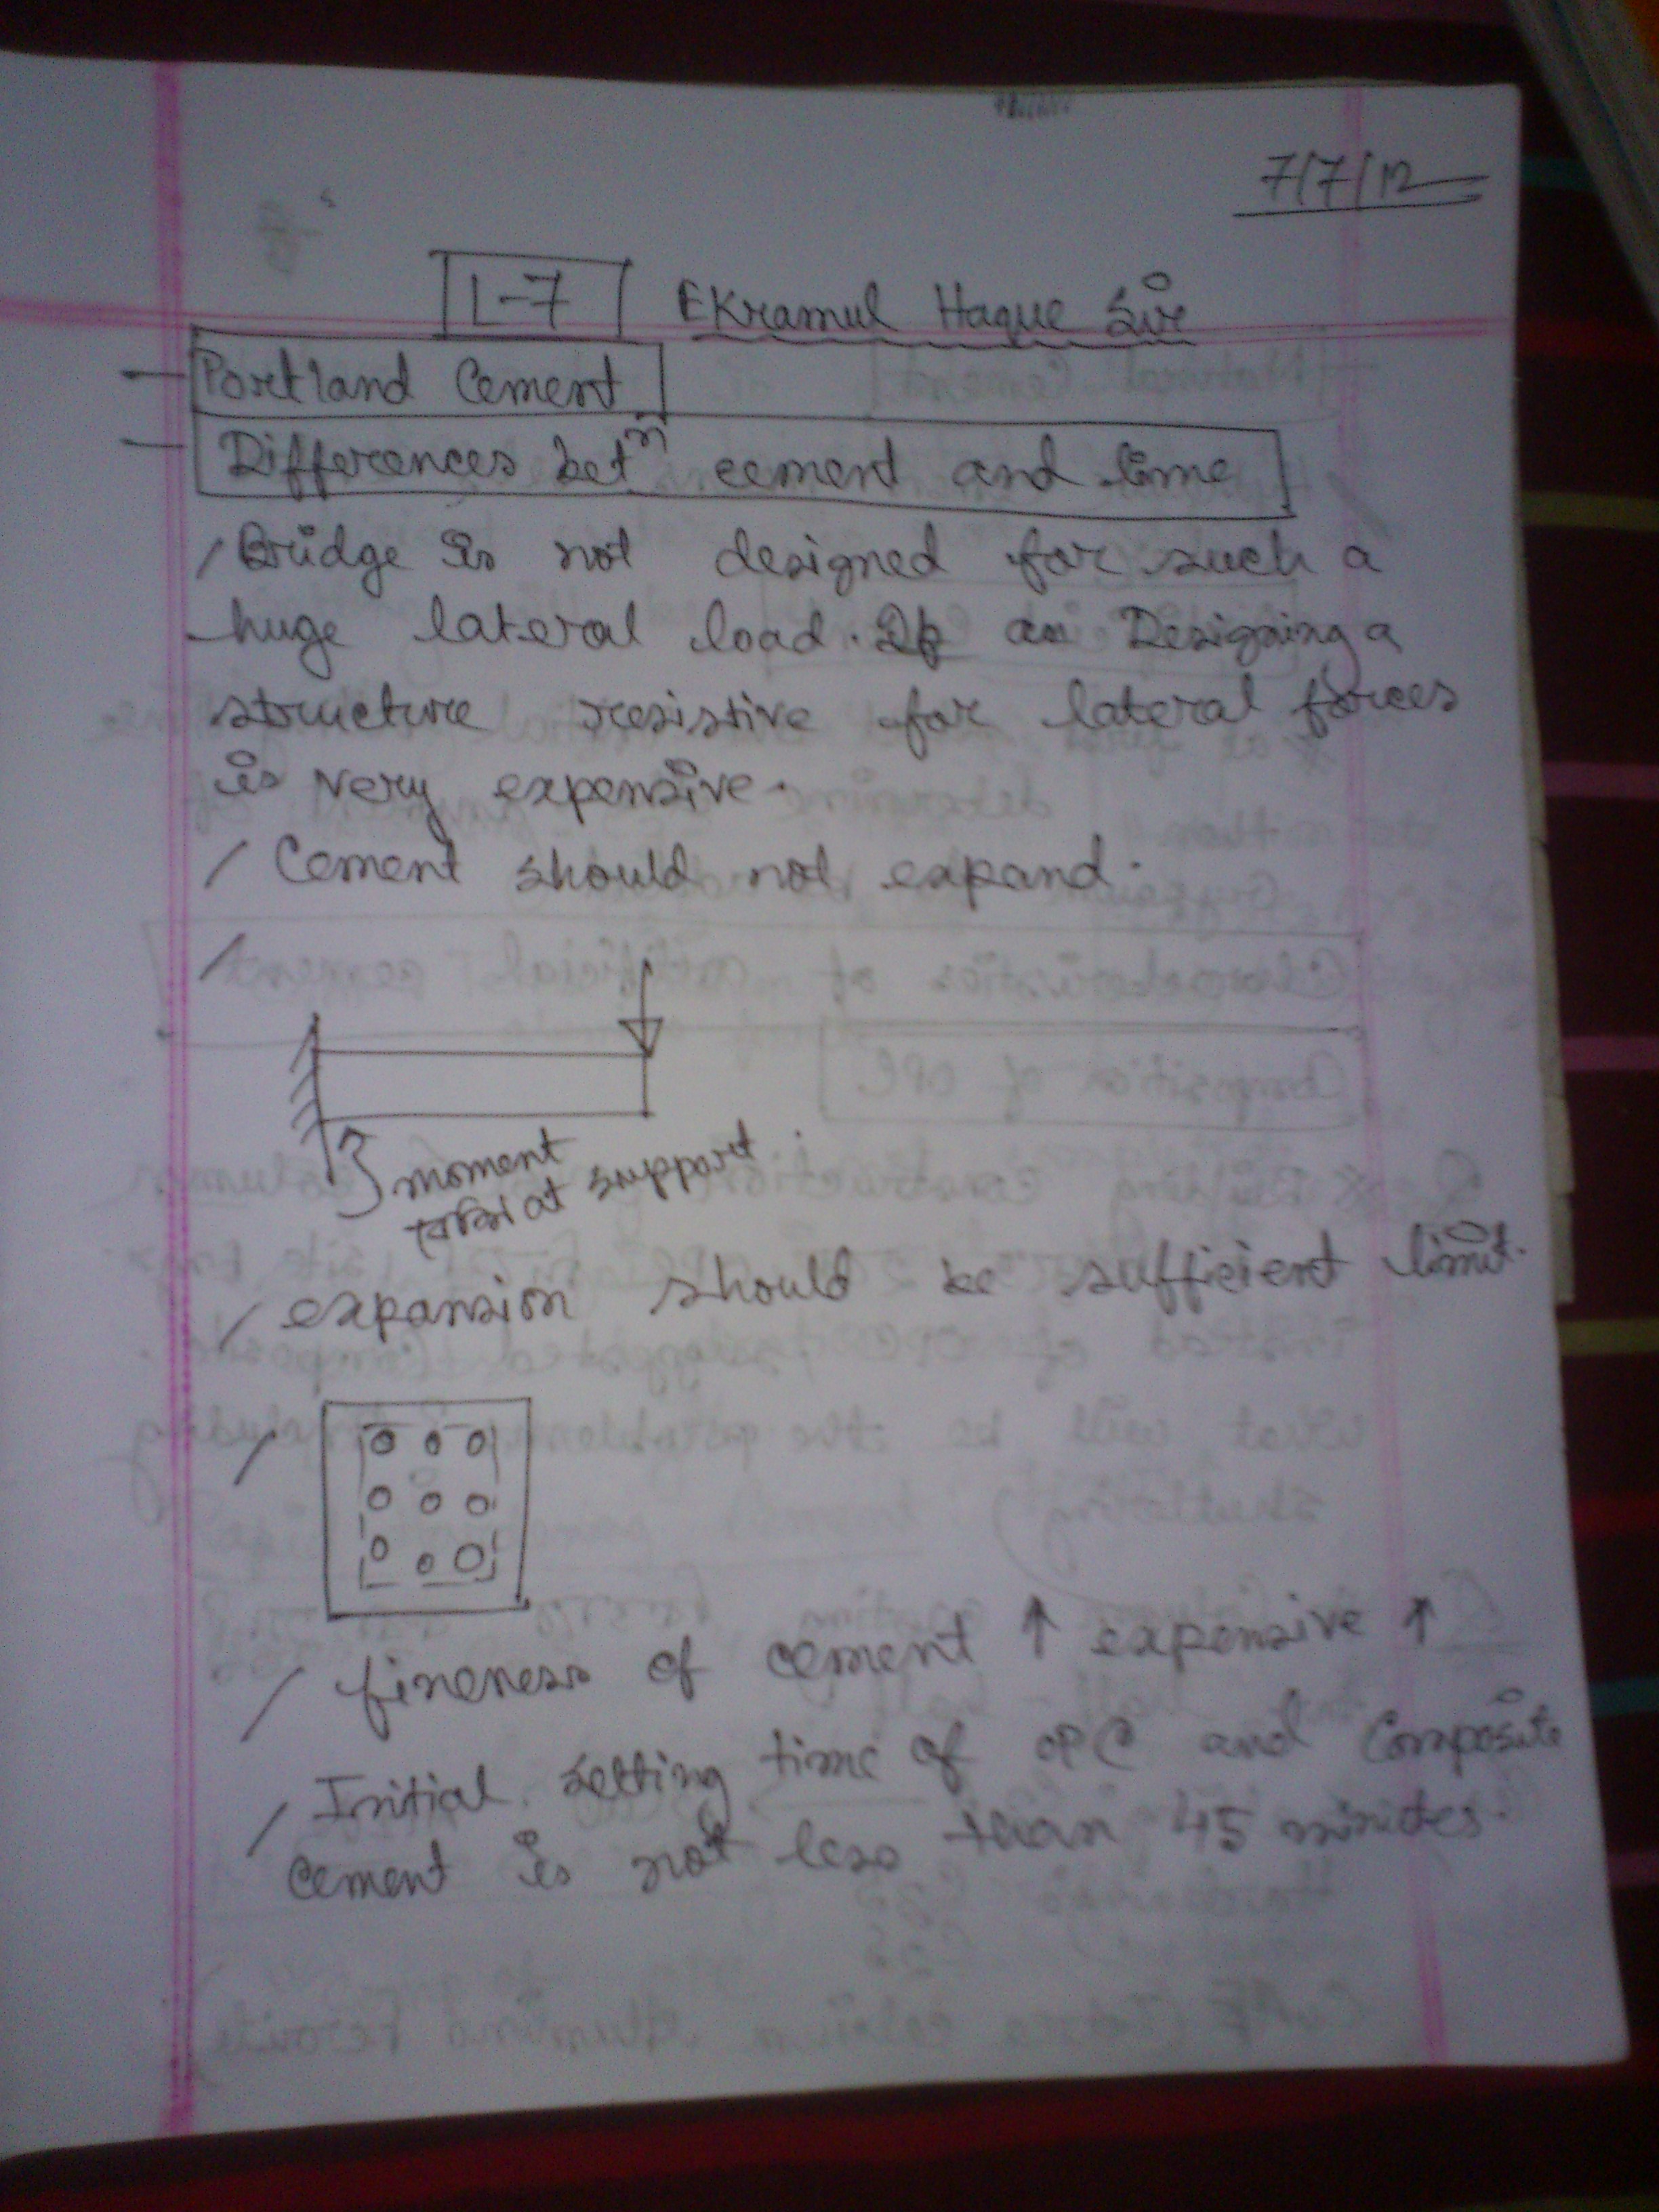 7/7/12
L-7 Ekramul Haque Sir
Portland Cement
Differences betⁿ cement and lime
/ Bridge is not designed for such a
huge lateral load. Designing a
structure resistive for lateral forces
is very expensive.
/ Cement should not expand.
/
moment
at support.
/ expansion should be sufficient limit.
/
/ fineness of cement ↑ expensive ↑
/ Initial setting time of OPC and Composite
cement is not less than 45 minutes.